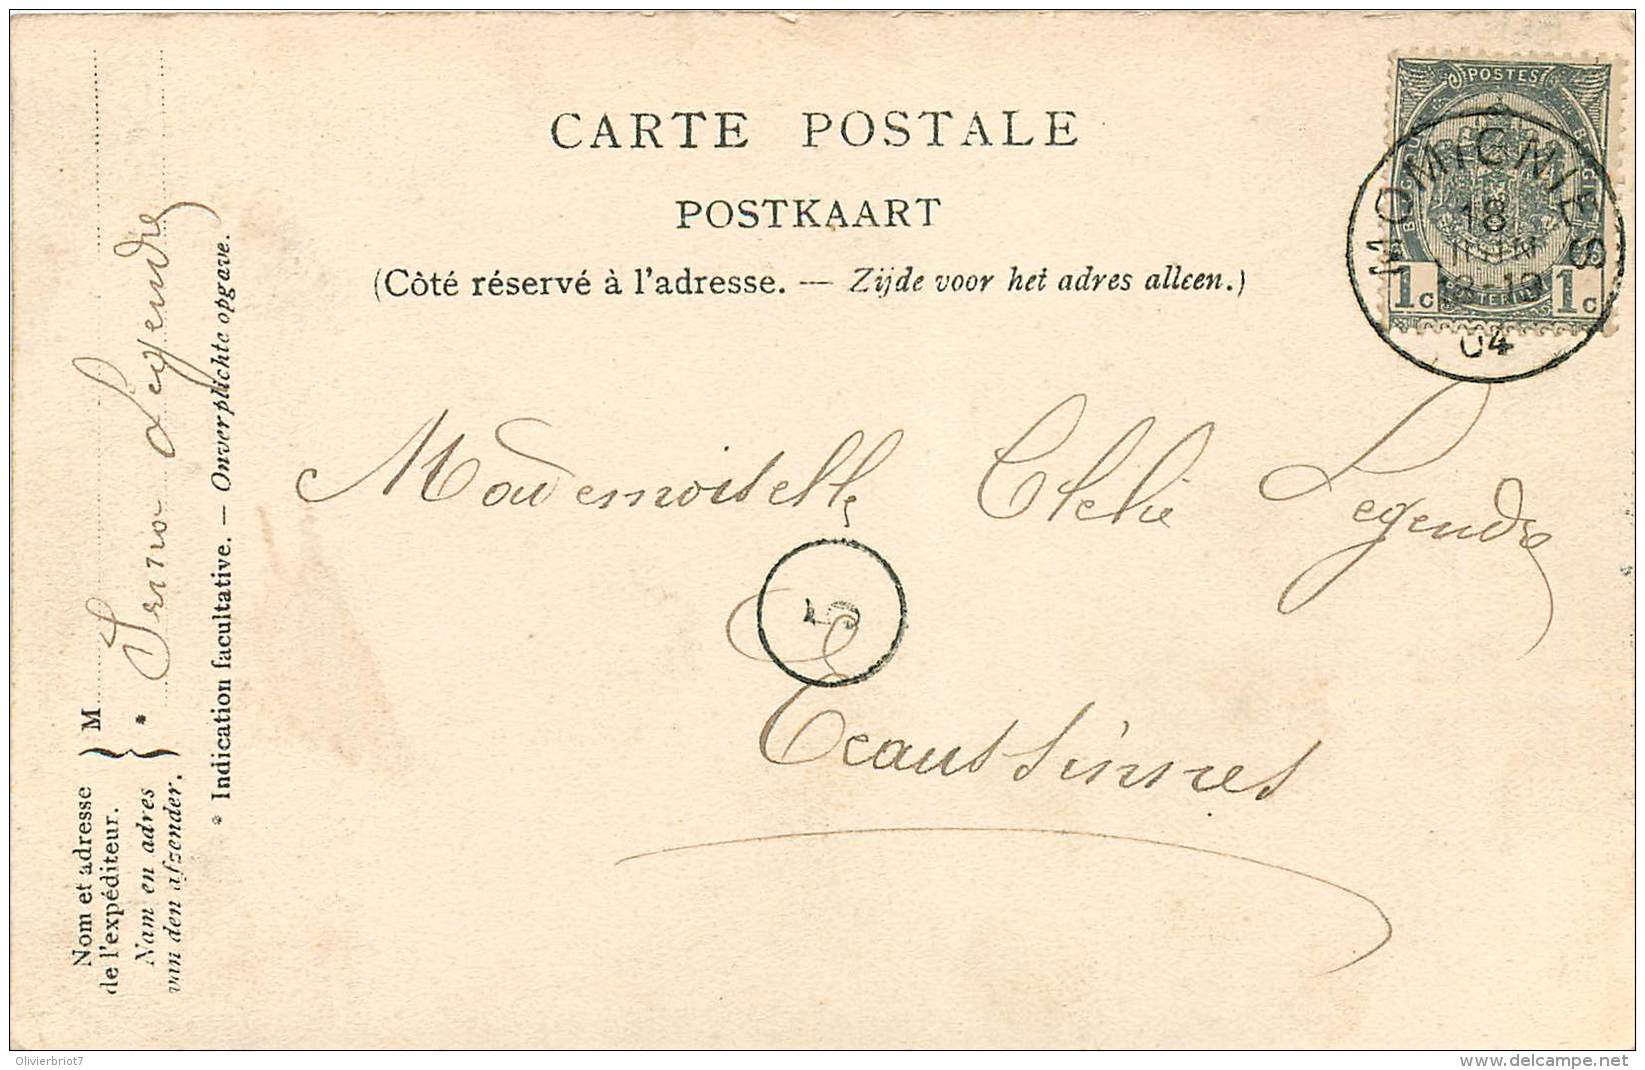 CARTE POSTALE
POSTKAART
(Côté réservé à l'adresse. — Zijde voor het adres alleen.)
POSTES
1c 1c
MOMIGNIES
18
JUIN
04
Mademoiselle Clélie Legendre
5
Ecaussinnes
Nom et adresse
de l'expéditeur.
Nam en adres
van den afzender.
M
* Irma Legendre
* Indication facultative. — Onverplichte opgave.
Olivierbriot7
www.delcampe.net